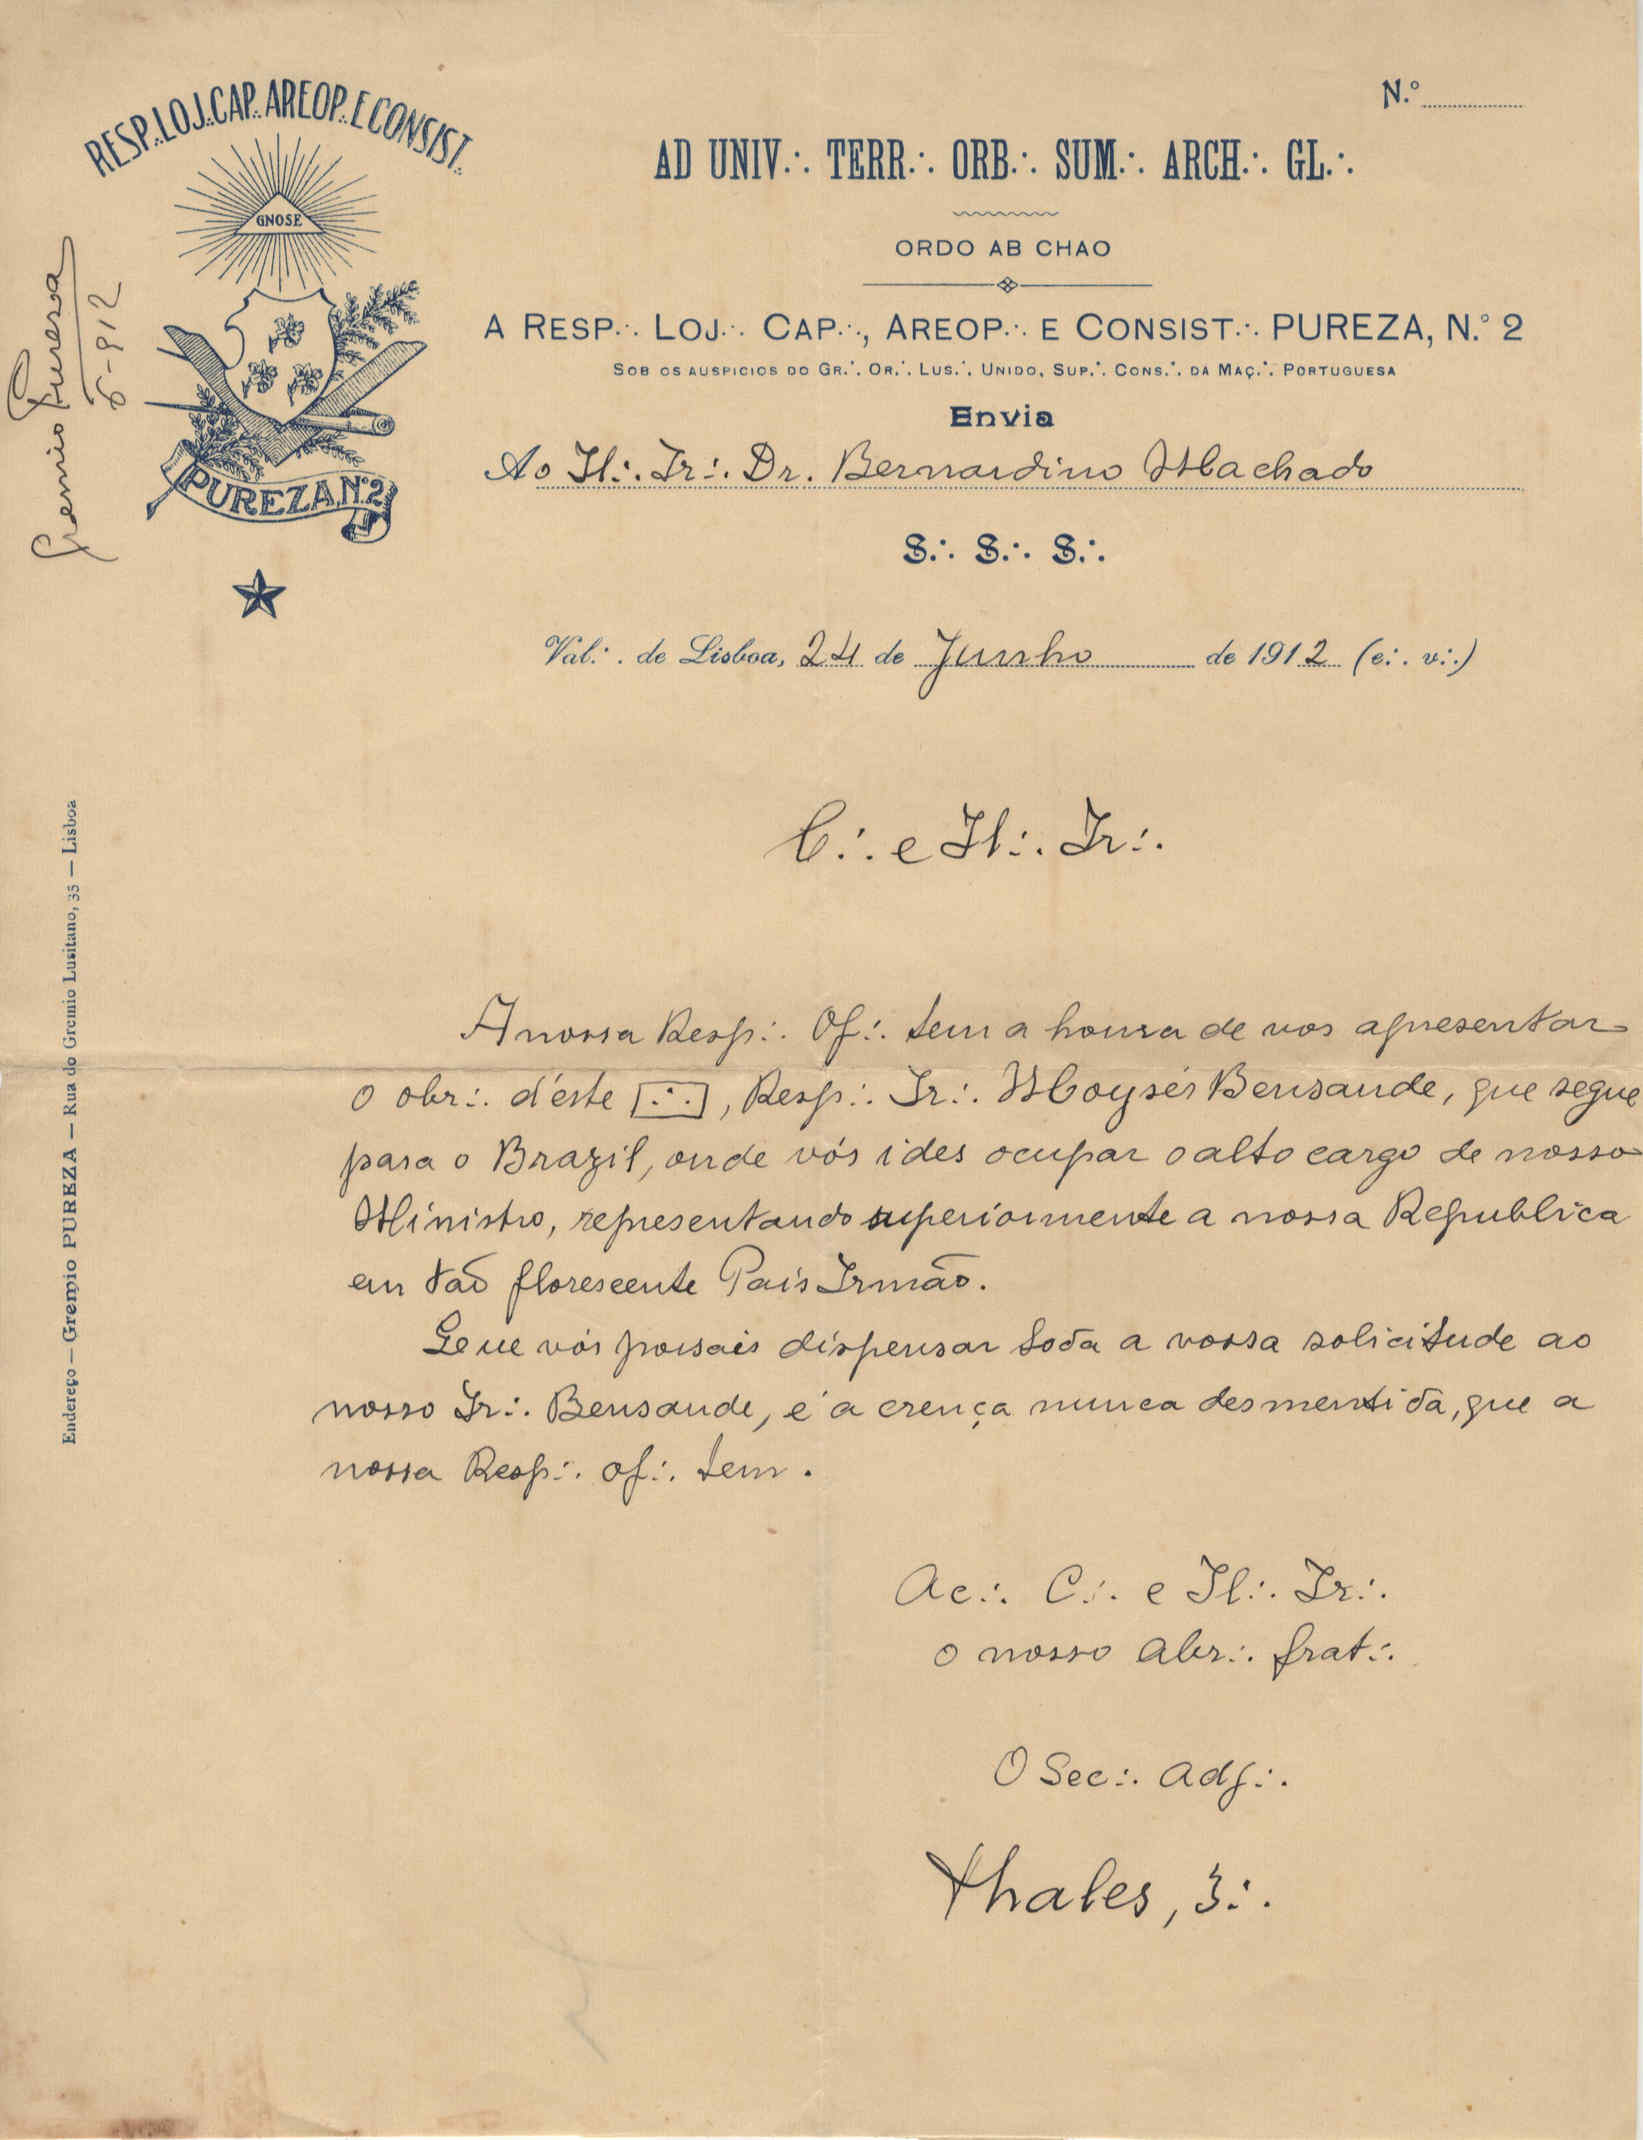 N.º
RESP.∴ LOJ.∴ CAP.∴ AREOP.∴ E CONSIST.∴
GNOSE
PUREZA, N.º 2
Gremio Pureza
6-912
AD UNIV.∴ TERR.∴ ORB.∴ SUM.∴ ARCH.∴ GL.∴
ORDO AB CHAO
A RESP.∴ LOJ.∴ CAP.∴, AREOP.∴ E CONSIST.∴ PUREZA, N.º 2
SOB OS AUSPICIOS DO GR.∴ OR.∴ LUS.∴ UNIDO, SUP.∴ CONS.∴ DA MAÇ.∴ PORTUGUESA
Envia
Ao Il∴ Ir∴ Dr. Bernardino Machado
S.∴ S.∴ S.∴
Val∴ de Lisboa, 24 de Junho de 1912 (e∴ v∴)
C∴ e Il∴ Ir∴
A nossa Resp∴ Of∴ tem a honra de vos apresentar
o obr∴ d'éste [∴], Resp∴ Ir∴ Moysés Bensaude, que segue
para o Brazil, onde vós ides ocupar o alto cargo de nosso
Ministro, representando superiormente a nossa Republica
em tão florescente País Irmão.
Que vós possais dispensar toda a vossa solicitude ao
nosso Ir∴ Bensaude, é a crença nunca desmentida, que a
nossa Resp∴ of∴ tem.
Ac∴ C∴ e Il∴ Ir∴
o nosso abr∴ frat∴
O Sec∴ adj∴
Thales, 3∴
Endereço — Gremio PUREZA — Rua do Gremio Lusitano, 35 — Lisboa